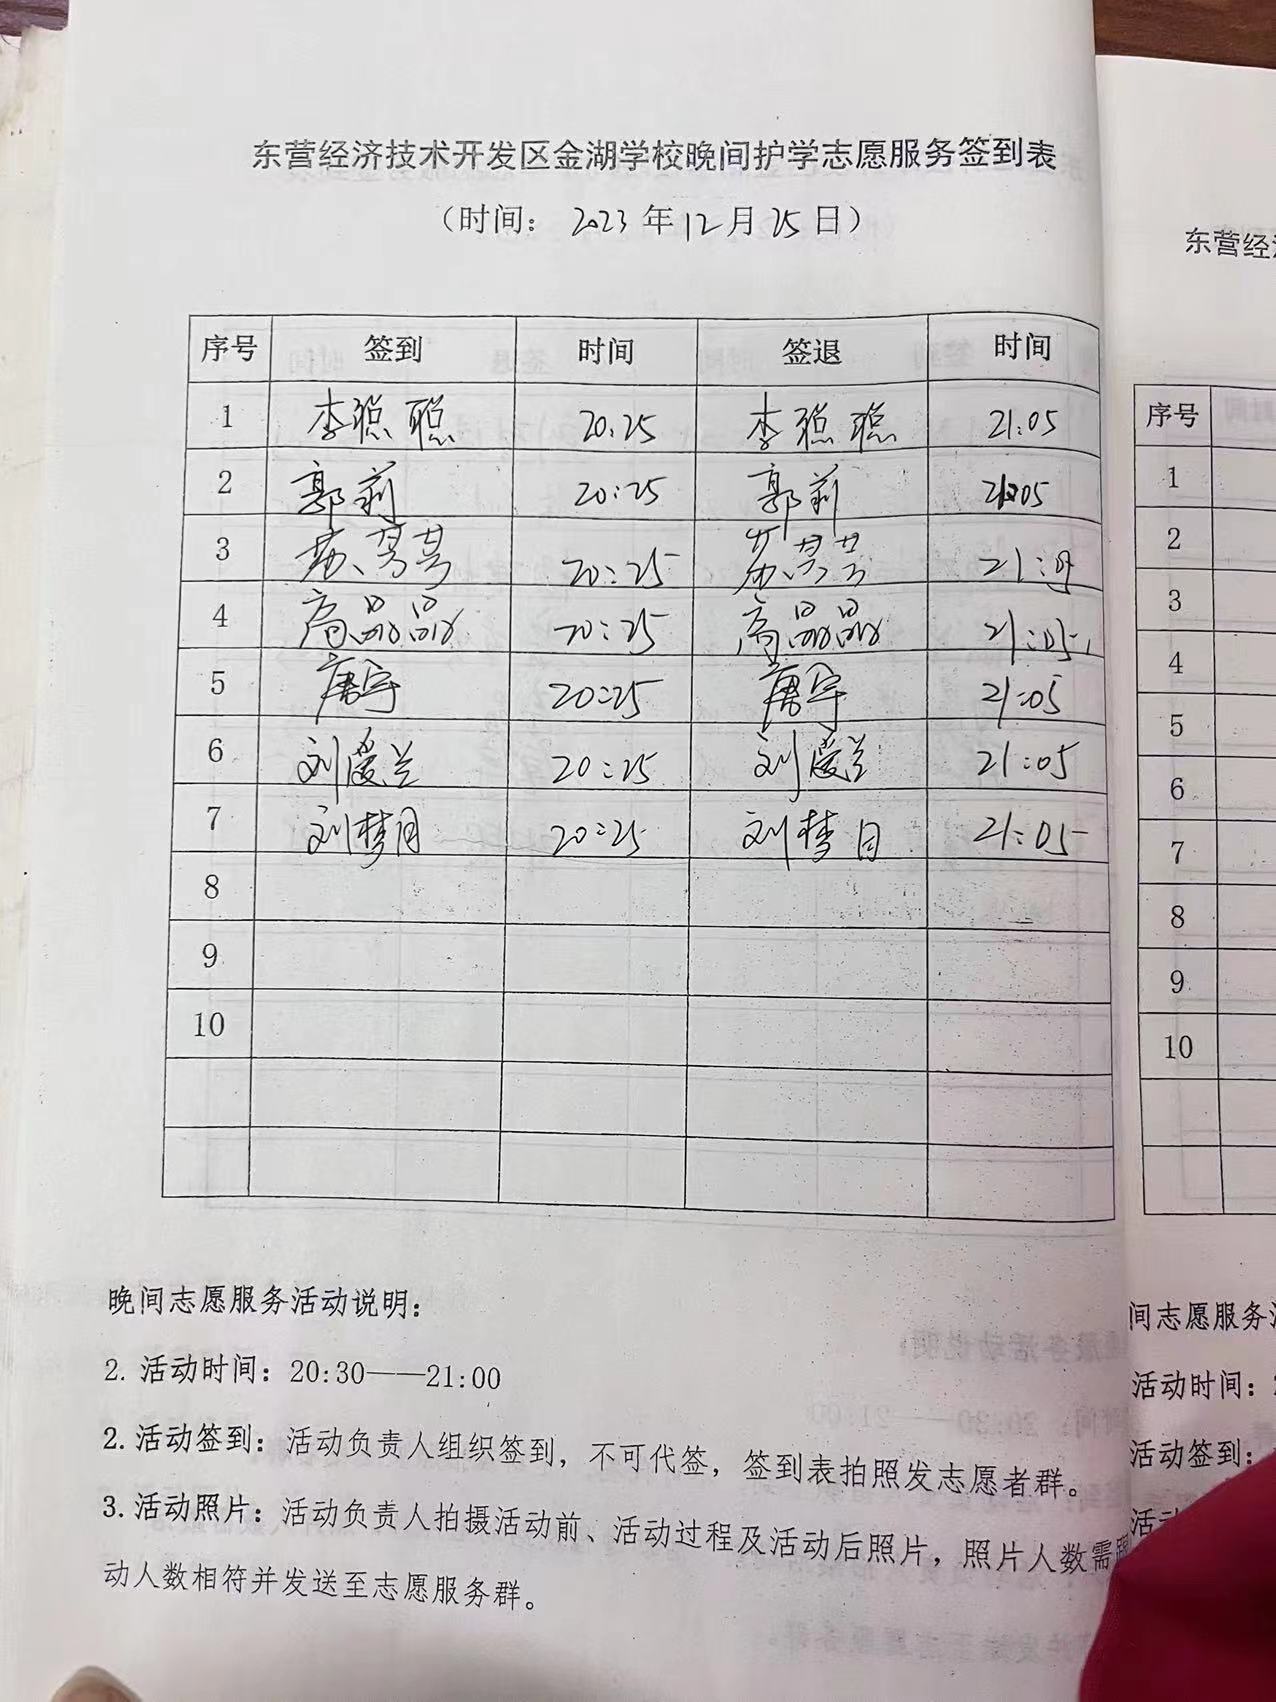 东营经济技术开发区金湖学校晚间护学志愿服务签到表
（时间： 2023 年 12 月 25 日）
序号 签到 时间 签退 时间
1 李聪聪 20:25 李聪聪 21:05
2 郭莉 20:25 郭莉 21:05
3 20:25 21:05
4 高晶晶 20:25 高晶晶 21:05
5 唐宇 20:25 唐宇 21:05
6 刘爱兰 20:25 刘爱兰 21:05
7 刘梦月 20:25 刘梦月 21:05
8
9
10
晚间志愿服务活动说明：
2. 活动时间：20:30——21:00
2. 活动签到：活动负责人组织签到，不可代签，签到表拍照发志愿者群。
3. 活动照片：活动负责人拍摄活动前、活动过程及活动后照片，照片人数需
动人数相符并发送至志愿服务群。
东营经
序号
1
2
3
4
5
6
7
8
9
10
间志愿服务
活动时间：
活动签到：